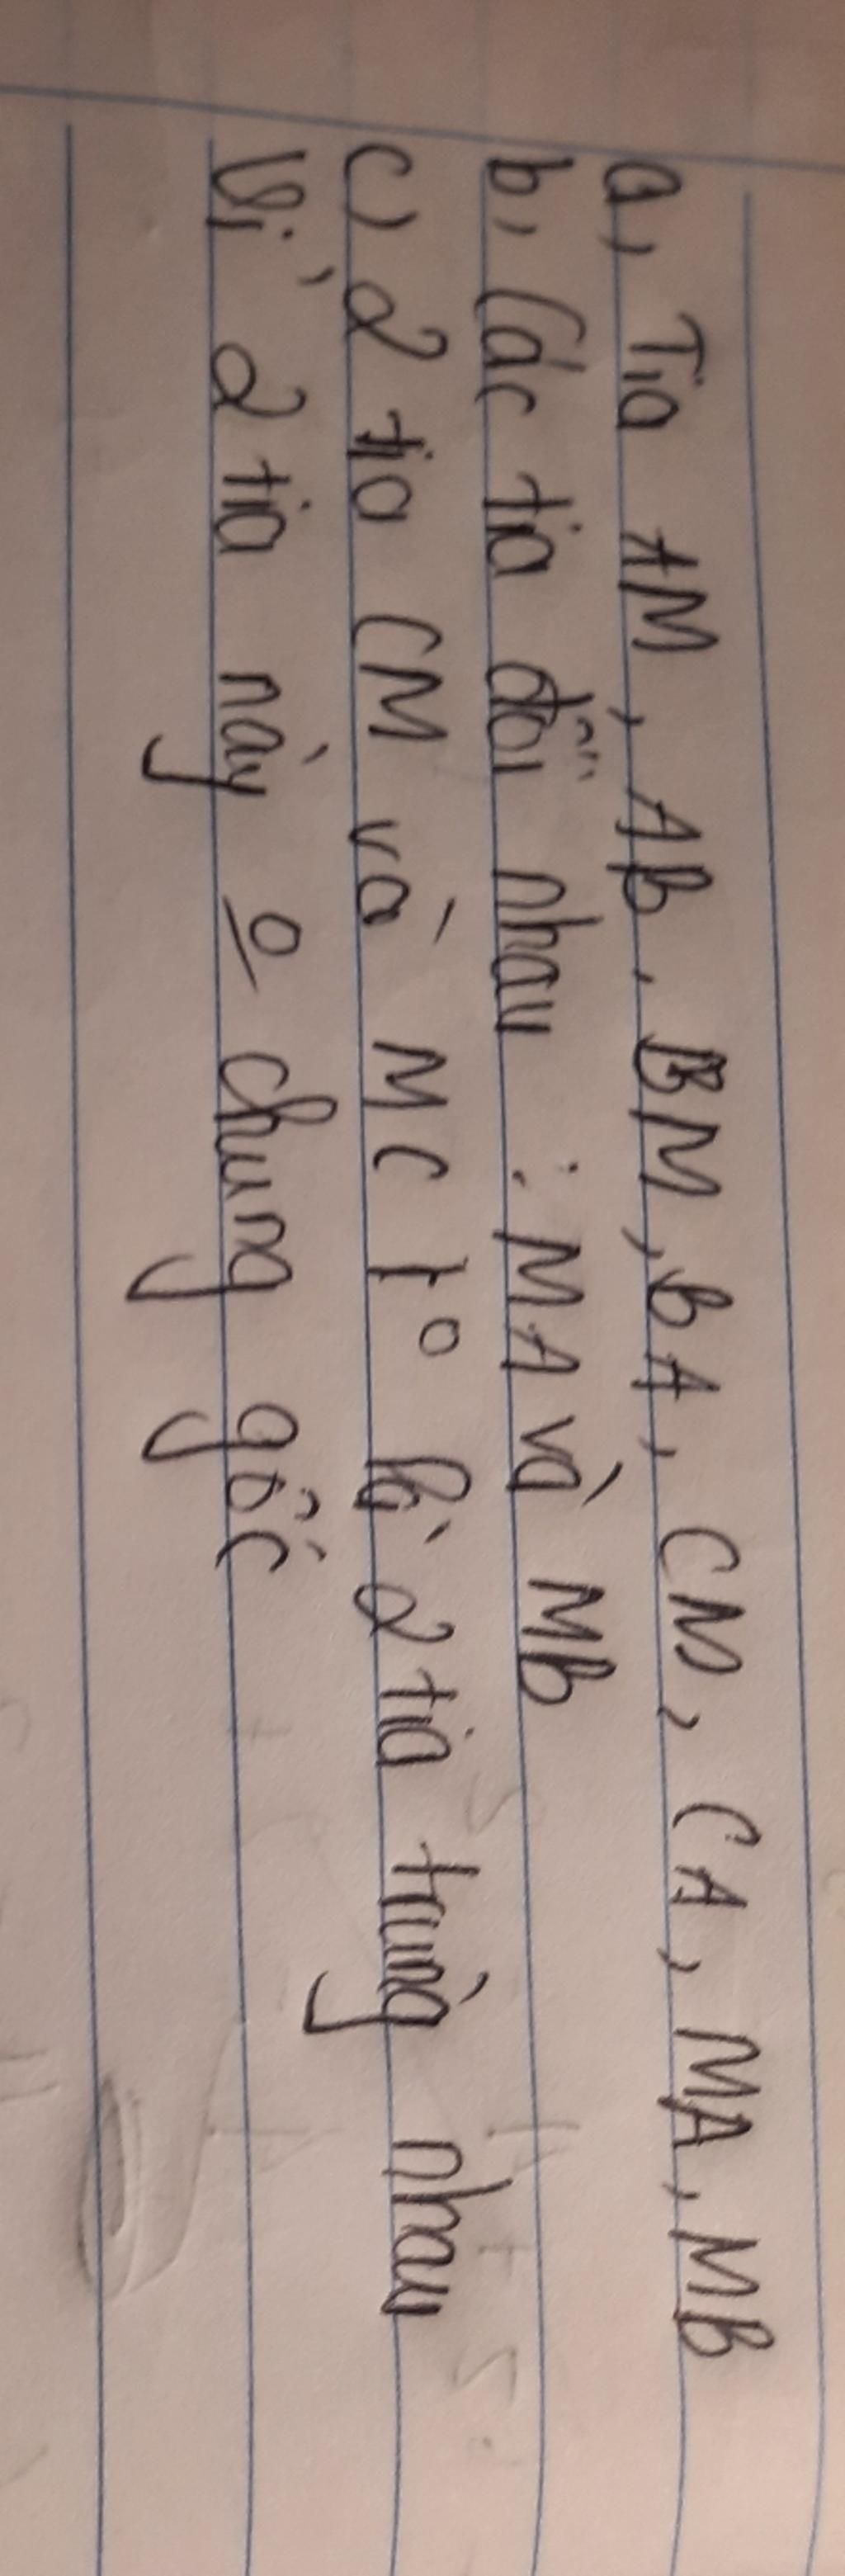 a, Tia AM, AB, BM, BA, CM, CA, MA, MB
b, Các tia đối nhau : MA và MB
c, 2 tia CM và MC là 2 tia trùng nhau
Vì 2 tia này o chung gốc